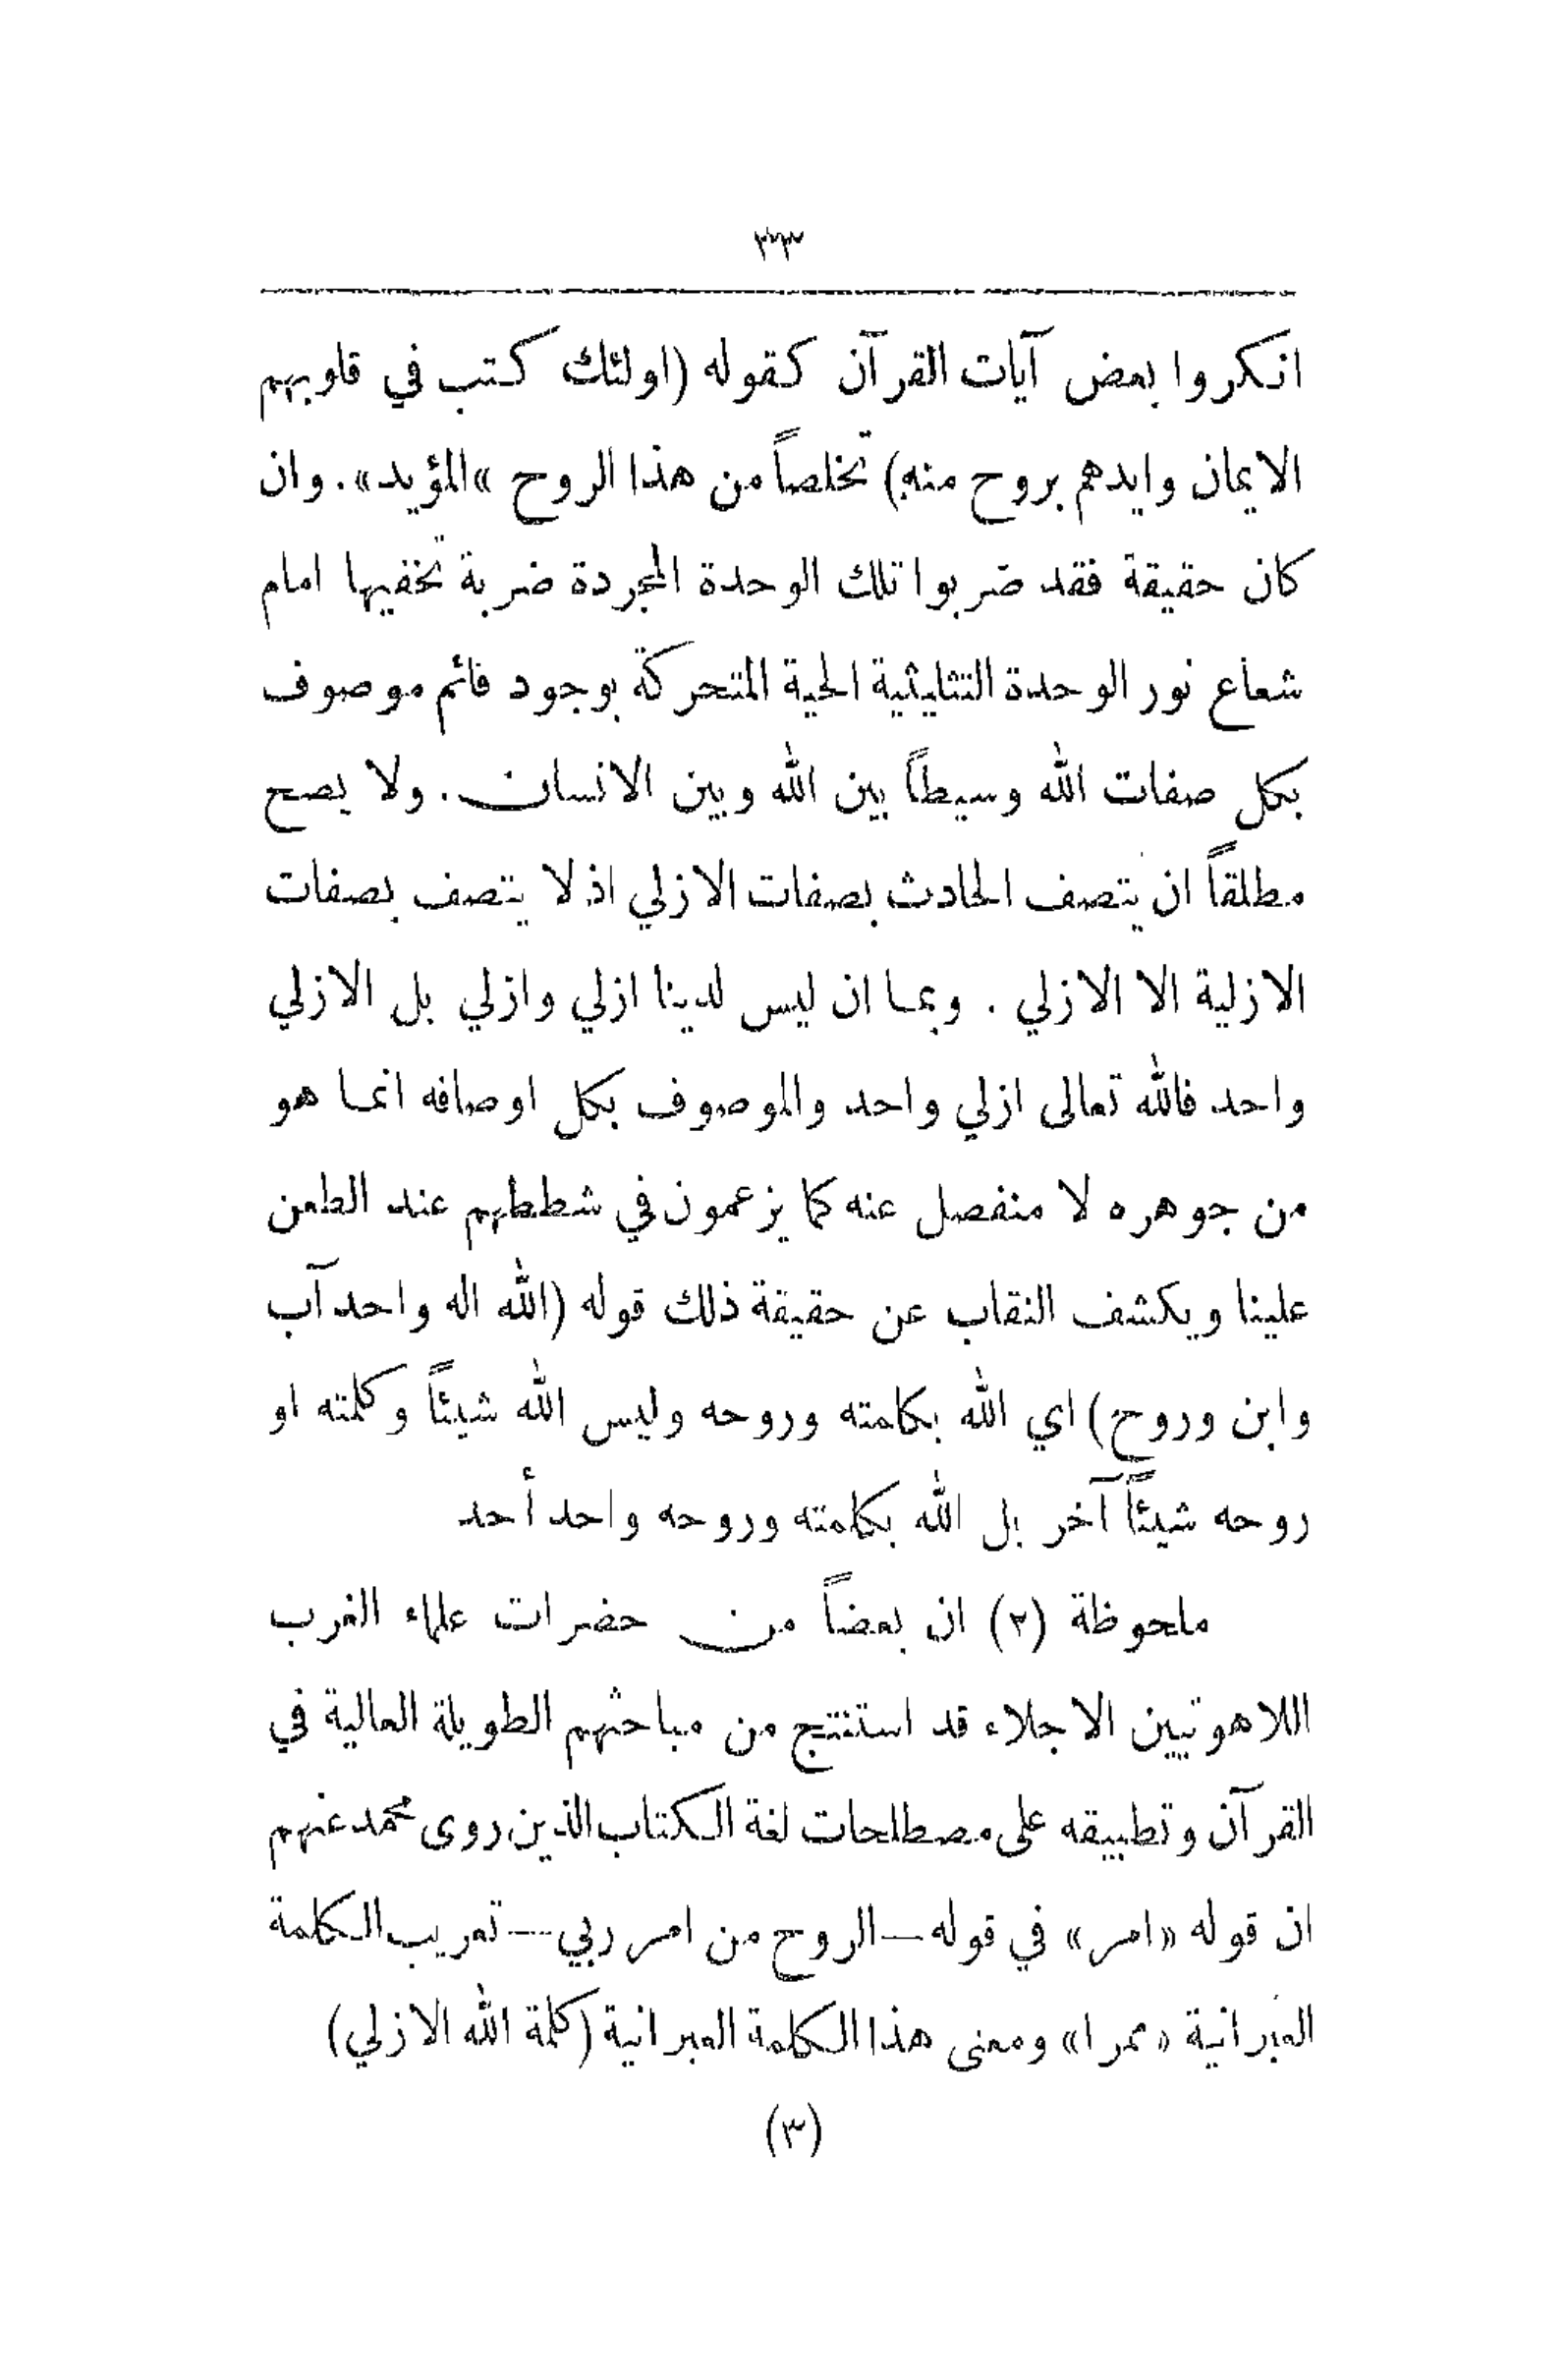 ٣٣
انكروا بعض آيات القرآن كقوله (اولئك كتب في قلوبهم
الايمان وايدهم بروح منه) تخلصاً من هذا الروح »المؤيد». وان
كان حقيقة فقد ضربوا تلك الوحدة المجردة ضربة تخفيها امام
شعاع نور الوحدة التثليثية الحية المتحركة بوجود قائم موصوف
بكل صفات الله وسيطاً بين الله وبين الانسان. ولا يصح
مطلقاً ان يتصف الحادث بصفات الازلي اذ لا يتصف بصفات
الازلية الا الازلي . وبما ان ليس لدينا ازلي وازلي بل الازلي
واحد فالله تعالى ازلي واحد والموصوف بكل اوصافه انما هو
من جوهره لا منفصل عنه كما يزعمون في شططهم عند الطعن
علينا ويكشف النقاب عن حقيقة ذلك قوله (الله اله واحد آب
وابن وروح) اي الله بكلمته وروحه وليس الله شيئاً وكلمته او
روحه شيئاً آخر بل الله بكلمته وروحه واحد أحد
ملحوظة (٢) ان بعضاً من حضرات علماء الغرب
اللاهوتيين الاجلاء قد استنتج من مباحثهم الطويلة العالية في
القرآن وتطبيقه على مصطلحات لغة الكتاب الذين روى محمد عنهم
ان قوله «امر» في قوله — الروح من امر ربي — تعريب الكلمة
العبرانية «ممرا» ومعنى هذا الكلمة العبرانية (كلمة الله الازلي)
(٣)